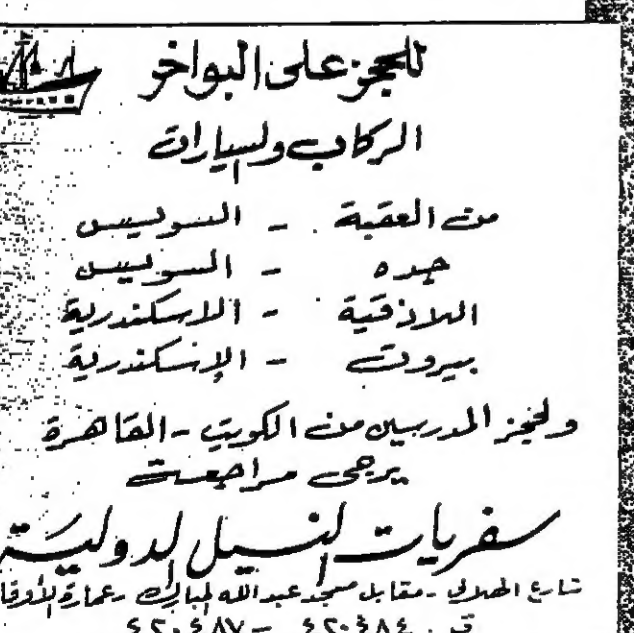 للحجز على البواخر
الركاب والسيارات
من العقبة - السويس
جده - السويس
اللاذقية - الاسكندرية
بيروت - الإسكندرية
ولحجز المدرسين من الكويت - القاهرة
يرجى مراجعة
سفريات النيل الدولية
شارع الهلالي - مقابل مسجد عبدالله المبارك - عمارة الأوقاف
٤٢٠٤٨٤ - ٤٢٠٤٨٧